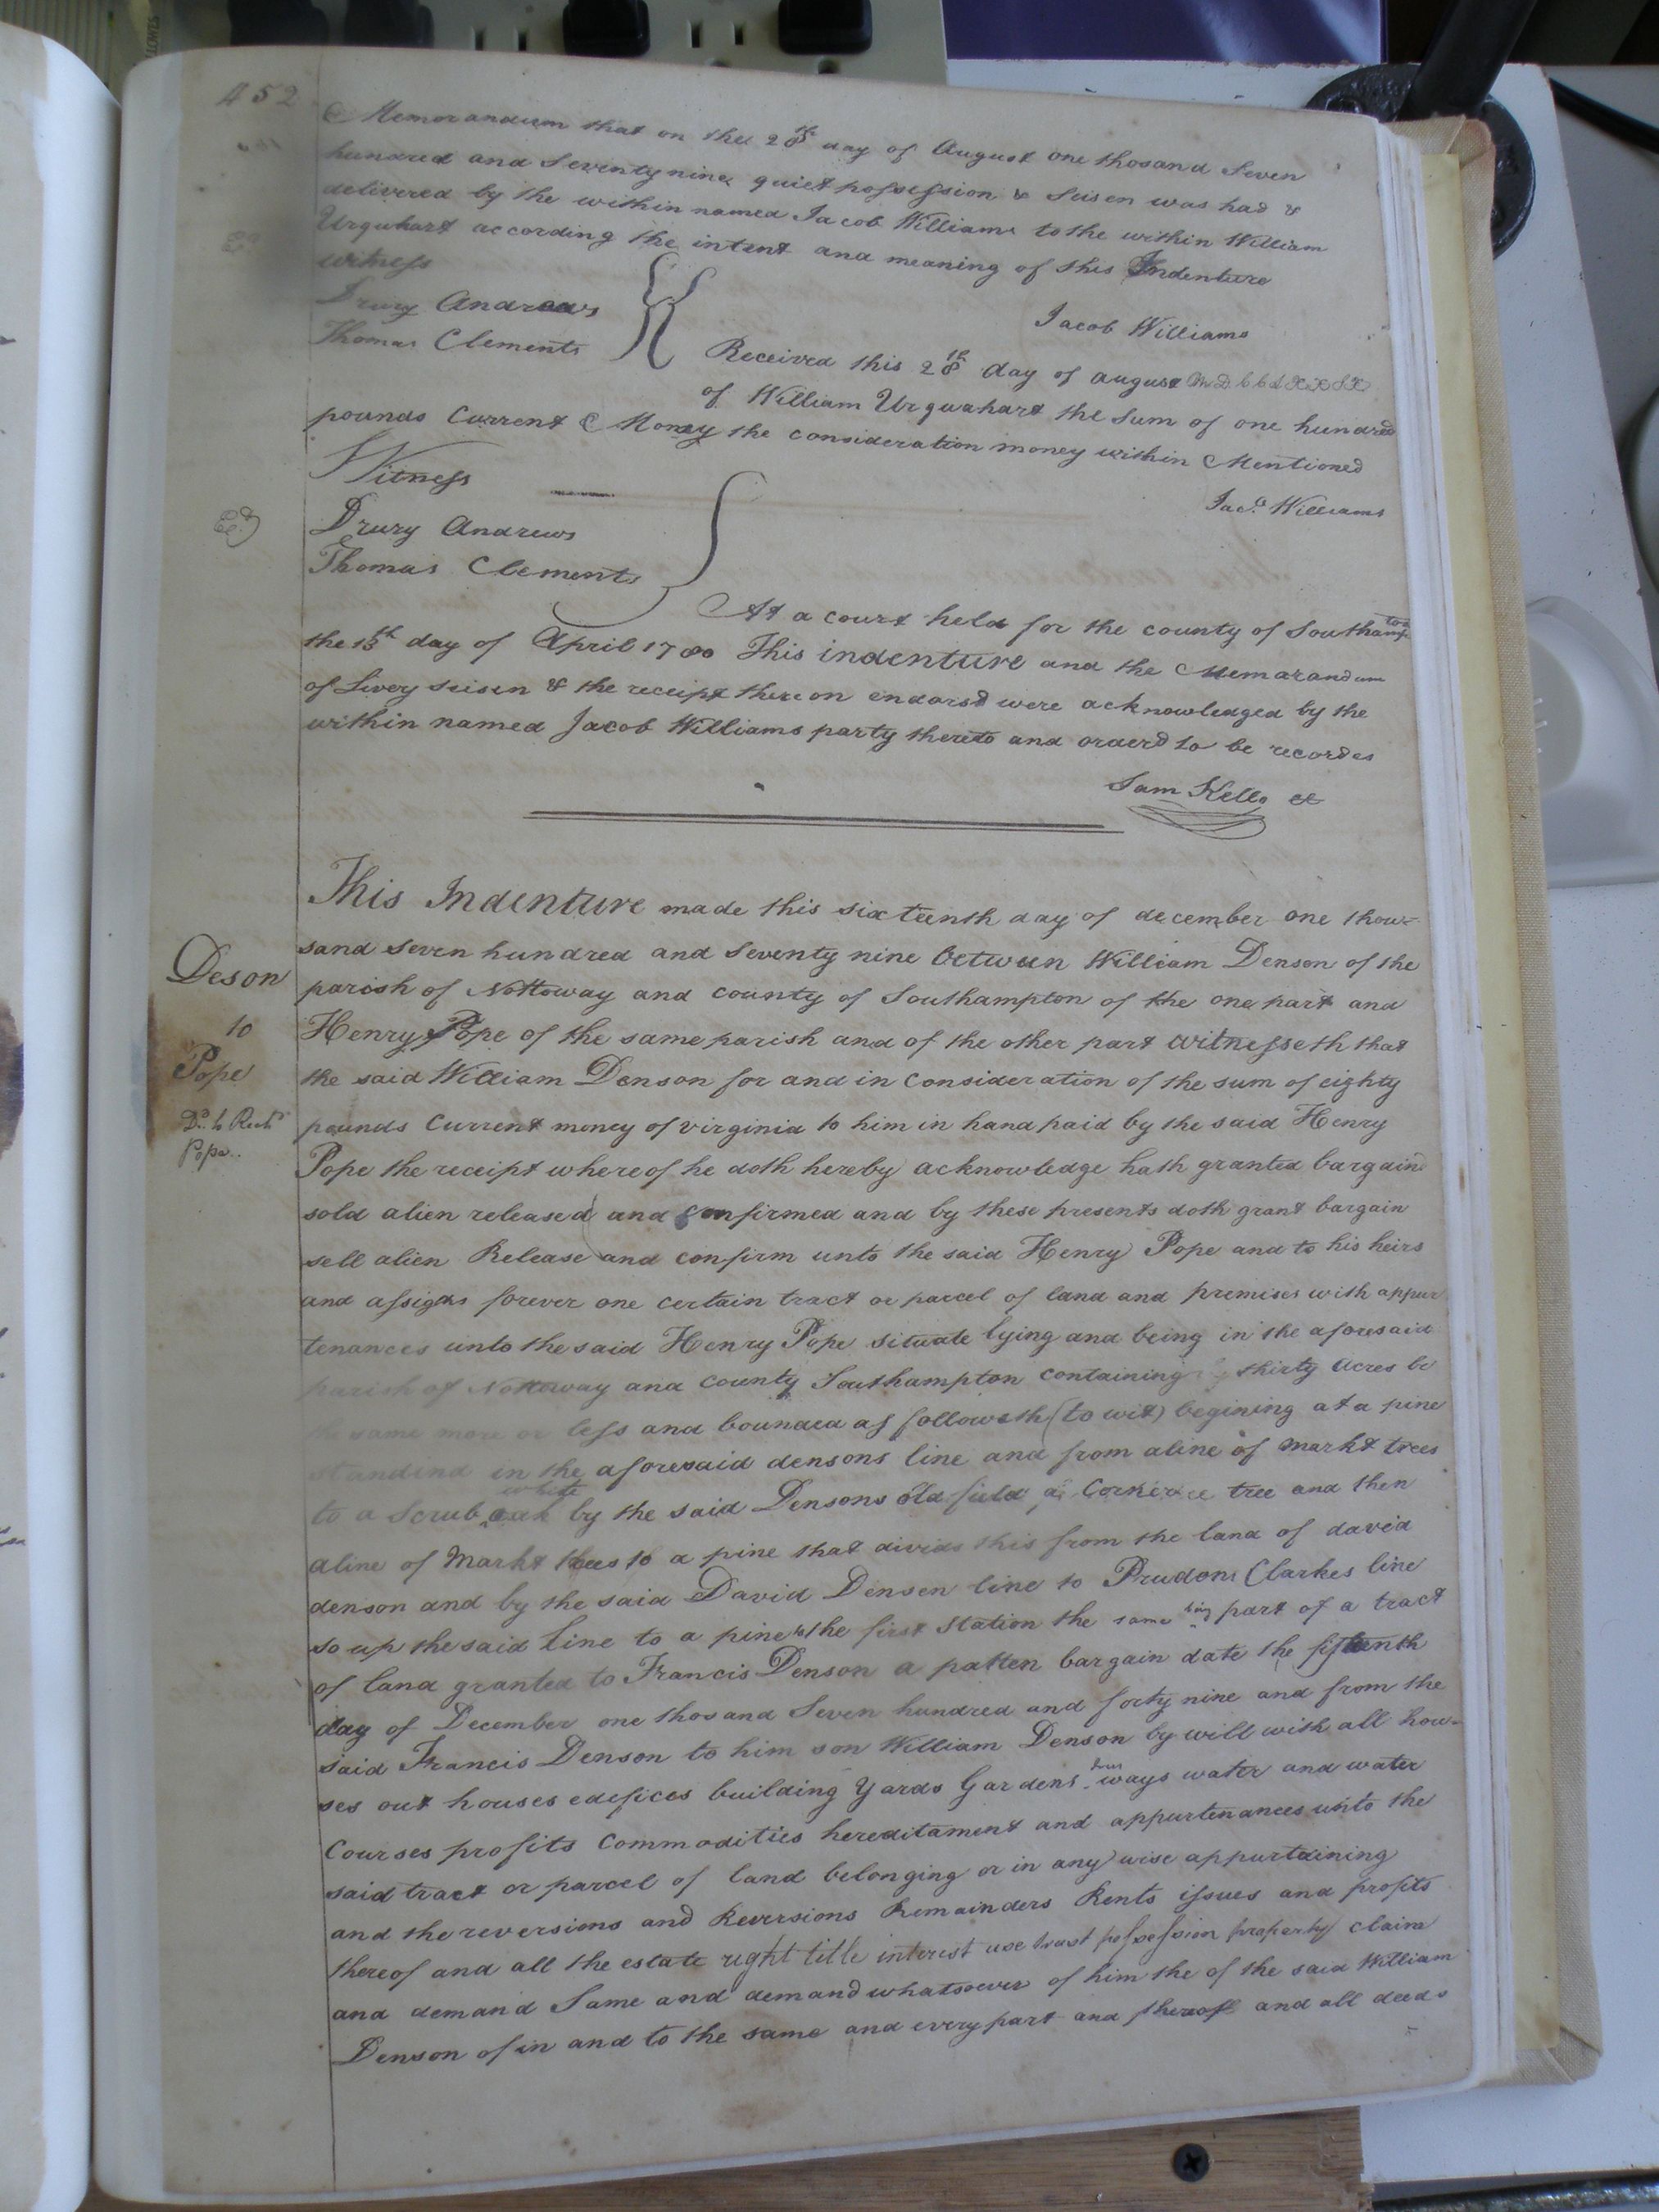 452
Memorandum that on the 28th day of August one thosand Seven
hundred and Seventy nine quiet possession & Seisen was had &
delivered by the within named Jacob Williams to the within William
Urquhart according the intent and meaning of this Indenture
witness
Drury Andrews
Thomas Clements
Jacob Williams
Received this 28th day of august
of William Urquahart the Sum of one hundred
pounds Current Money the consideration money within Mentioned
Witness
Jac.o Williams
Drury Andrews
Thomas Clements
At a court held for the county of Southampton
the 13th day of April 1780 This indenture and the Memarandum
of Livery seisen & the receipt there on endorsd were acknowledged by the
within named Jacob Williams party thereto and orderd to be recordes
Sam Kello
This Indenture made this sixteenth day of december one thow-
sand seven hundred and seventy nine between William Denson of the
Deson
parish of Nottoway and county of Southampton of the one part and
to
Henry Pope of the same parish and of the other part witnesseth that
Pope
the said William Denson for and in Consideration of the sum of eighty
Dd. to
pounds Current money of virginia to him in hand paid by the said Henry
Pope..
Pope the receipt whereof he doth hereby acknowledge hath granted bargain
sold alien released and confirmed and by these presents doth grant bargain
sell alien Release and confirm unto the said Henry Pope and to his heirs
and assigns forever one certain tract or parcel of land and premises with appur
tenances unto the said Henry Pope situate lying and being in the aforesaid
parish of Nottoway and county Southampton containing thirty acres be
the same more or less and bounded as followeth (to wit) begining at a pine
standind in the aforesaid densons line and from aline of markt trees
to a scrub white oak by the said Densons old field a Corner tree and then
aline of Markt trees to a pine that divids this from the land of david
denson and by the said David Denson line to Prudom Clarkes line
so up the said line to a pine to the first station the same being part of a tract
of land granted to Francis Denson a patten bargain date the fifteenth
day of December one thosand Seven hundred and forty nine and from the
said Francis Denson to him son William Denson by will with all hou-
ses out houses edefices building Yards Gardens ways water and water
Courses profits Commodities hereditament and appurtenances unto the
said tract or parcel of land belonging or in any wise appurtaining
and the reversions and Reversions Remainders Rents issues and profits
thereof and all the estate right title interest use trust possession property claim
and demand Same and demand whatsoever of him the of the said William
Denson of in and to the same and every part and thereoff and all deeds